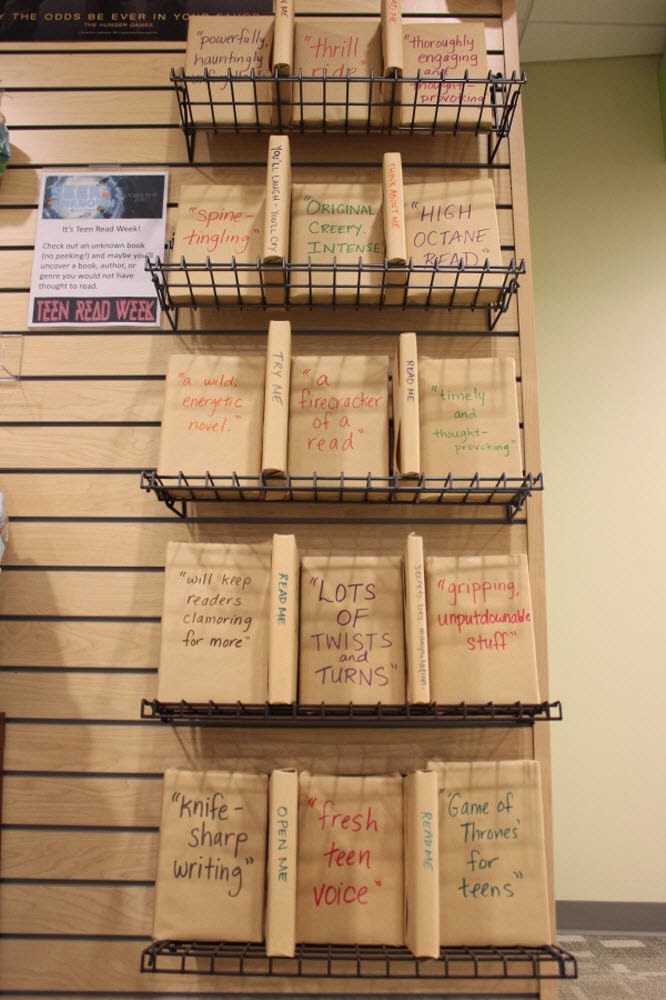 THE ODDS BE EVER IN YOUR FAVOR
THE HUNGER GAMES
"powerfully,
hauntingly
"thrill
ride"
READ
"thoroughly
engaging
and
thought-
provoking
It's Teen Read Week!
Check out an unknown book
(no peeking!) and maybe you'll
uncover a book, author, or
genre you would not have
thought to read.
TEEN READ WEEK
"spine-
tingling"
YOU'LL LAUGH - YOU'LL CRY
"ORIGINAL
CREEPY,
INTENSE
THINK ABOUT ME
"HIGH
OCTANE
READ"
"a wild,
energetic
novel."
TRY ME
"a
firecracker
of a
read"
READ ME
"timely
and
thought-
provoking"
"will keep
readers
clamoring
for more"
READ ME
"LOTS
OF
TWISTS
and
TURNS"
secrets lies. manipulation
"gripping,
unputdownable
stuff"
"knife-
sharp
writing"
OPEN ME
"fresh
teen
voice"
READ ME
"'Game of
Thrones'
for
teens"